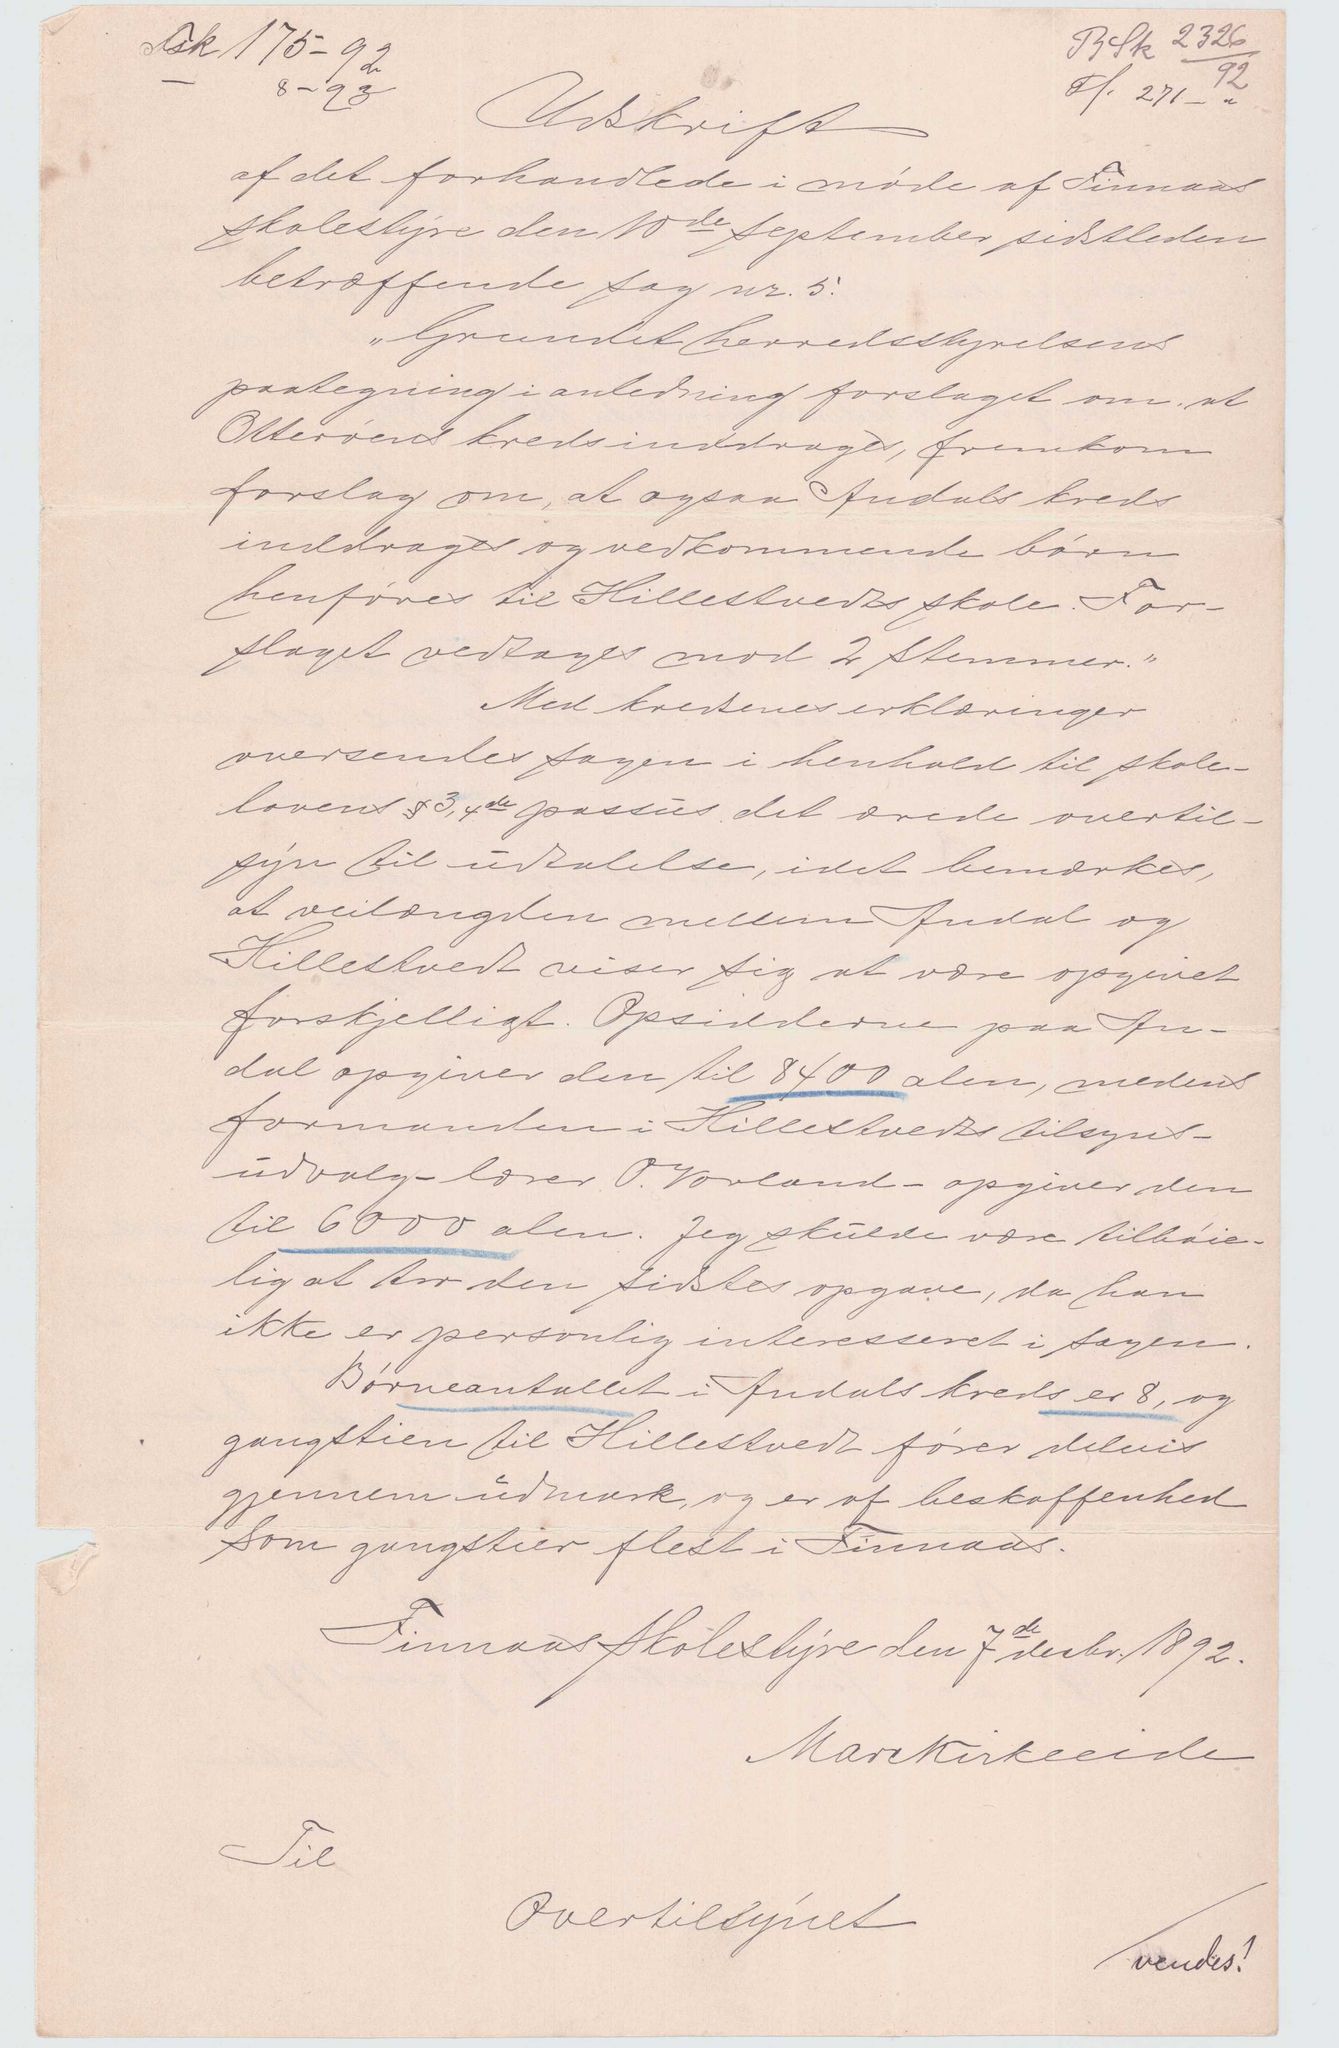 Tsk 175-92
8-93
BSk 2326/92
Tf. 271-"
Udskrift
af det forhandlede i møde af Finnaas
skolestyre den 10de september sidstleden
betræffende sag nr. 5.
"Grundet herredsstyrelsens
paategning i anledning forslaget om at
Otterøens kreds inddrages, fremkom
forslag om, at ogsaa Andals kreds
inddrages og vedkommende børn
henføres til Hillestvedts skole. For-
slaget vedtages mod 2 stemmer."
Med kredsenes erklæringer
oversendes sagen i henhold til skole-
lovens § 3, 4de passus det ærede overtil-
syn til udtalelse, idet bemærkes,
at veilængden mellem Andal og
Hillestvedt viser sig at være opgivet
forskjelligt. Opsidderne paa An-
dal opgiver den til 8400 alen, medens
formanden i Hillestvedts tilsyns-
udvalg - lærer O. Vorland - opgiver den
til 6000 alen. Jeg skulde være tilbøie-
lig at tro den sidstes opgave, da han
ikke er personlig interesseret i sagen.
Børneantallet i Andals kreds er 8, og
gangstien til Hillestvedt fører delvis
gjennem udmark, og er af beskaffenhed
som gangstier flest i Finnaas.
Finnaas skolestyre den 7de decbr. 1892.
Marckirkeeide
Til
Overtilsynet
vendes!